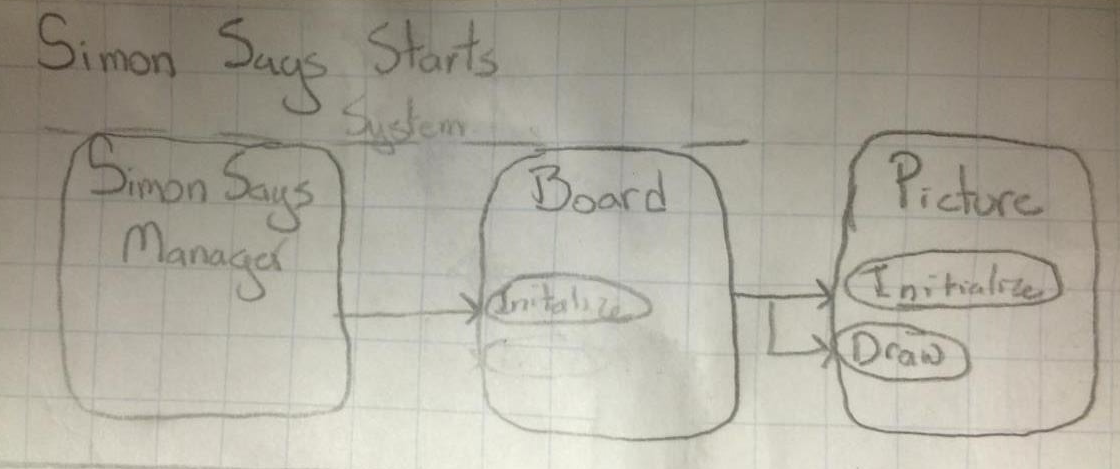 Simon Says Starts
System
Simon Says
Manager
Board
Initalize
Picture
Initialize
Draw